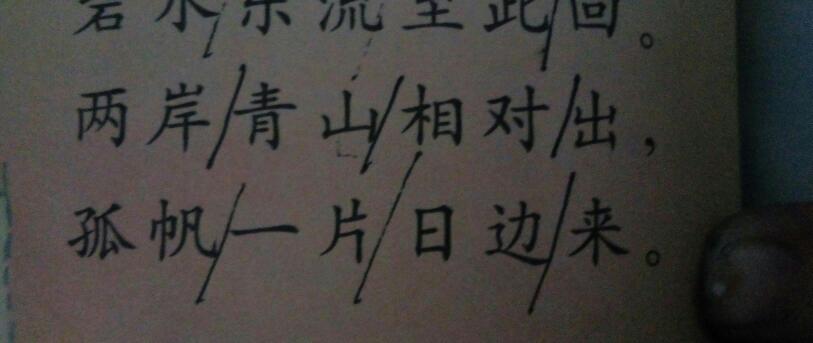 碧水东流至此回。
两岸/青山/相对/出，
孤帆/一片/日边/来。